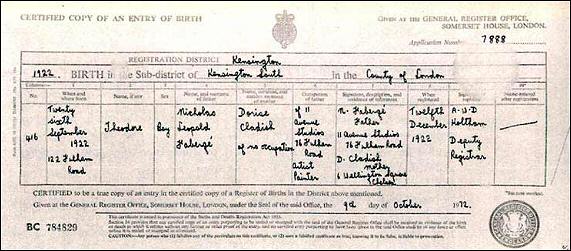 CERTIFIED COPY OF AN ENTRY OF BIRTH
GIVEN AT THE GENERAL REGISTER OFFICE,
SOMERSET HOUSE, LONDON.
Application Number 7888
REGISTRATION DISTRICT Kensington
1922. BIRTH in the Sub-district of Kensington South in the County of London
No.
When and where born
Name, if any
Sex
Name, and surname of father
Name, surname, and maiden surname of mother
Occupation of father
Signature, description, and residence of informant
When registered
Signature of registrar
Name entered after registration
416
Twenty
sixth
September
1922
122 Fulham
Road
Theodore
Boy
Nicholas
Leopold
Fabergé
Dorise
Cladish
of no occupation
of 11
avenue
Studios
76 Fulham
Road
artist
Painter
N. Faberge
Father
11 avenue Studios
76 Fulham Road
D. Cladish
mother
6 Wellington Square
Chelsea
Twelfth
December
1922
A.W.D
Holtham
Deputy
Registrar
CERTIFIED to be a true copy of an entry in the certified copy of a Register of Births in the District above mentioned.
Given at the GENERAL REGISTER OFFICE, SOMERSET HOUSE, LONDON, under the Seal of the said Office, the 9th day of October 1972.
BC 784829
This certificate is issued in pursuance of the Births and Deaths Registration Act 1953.